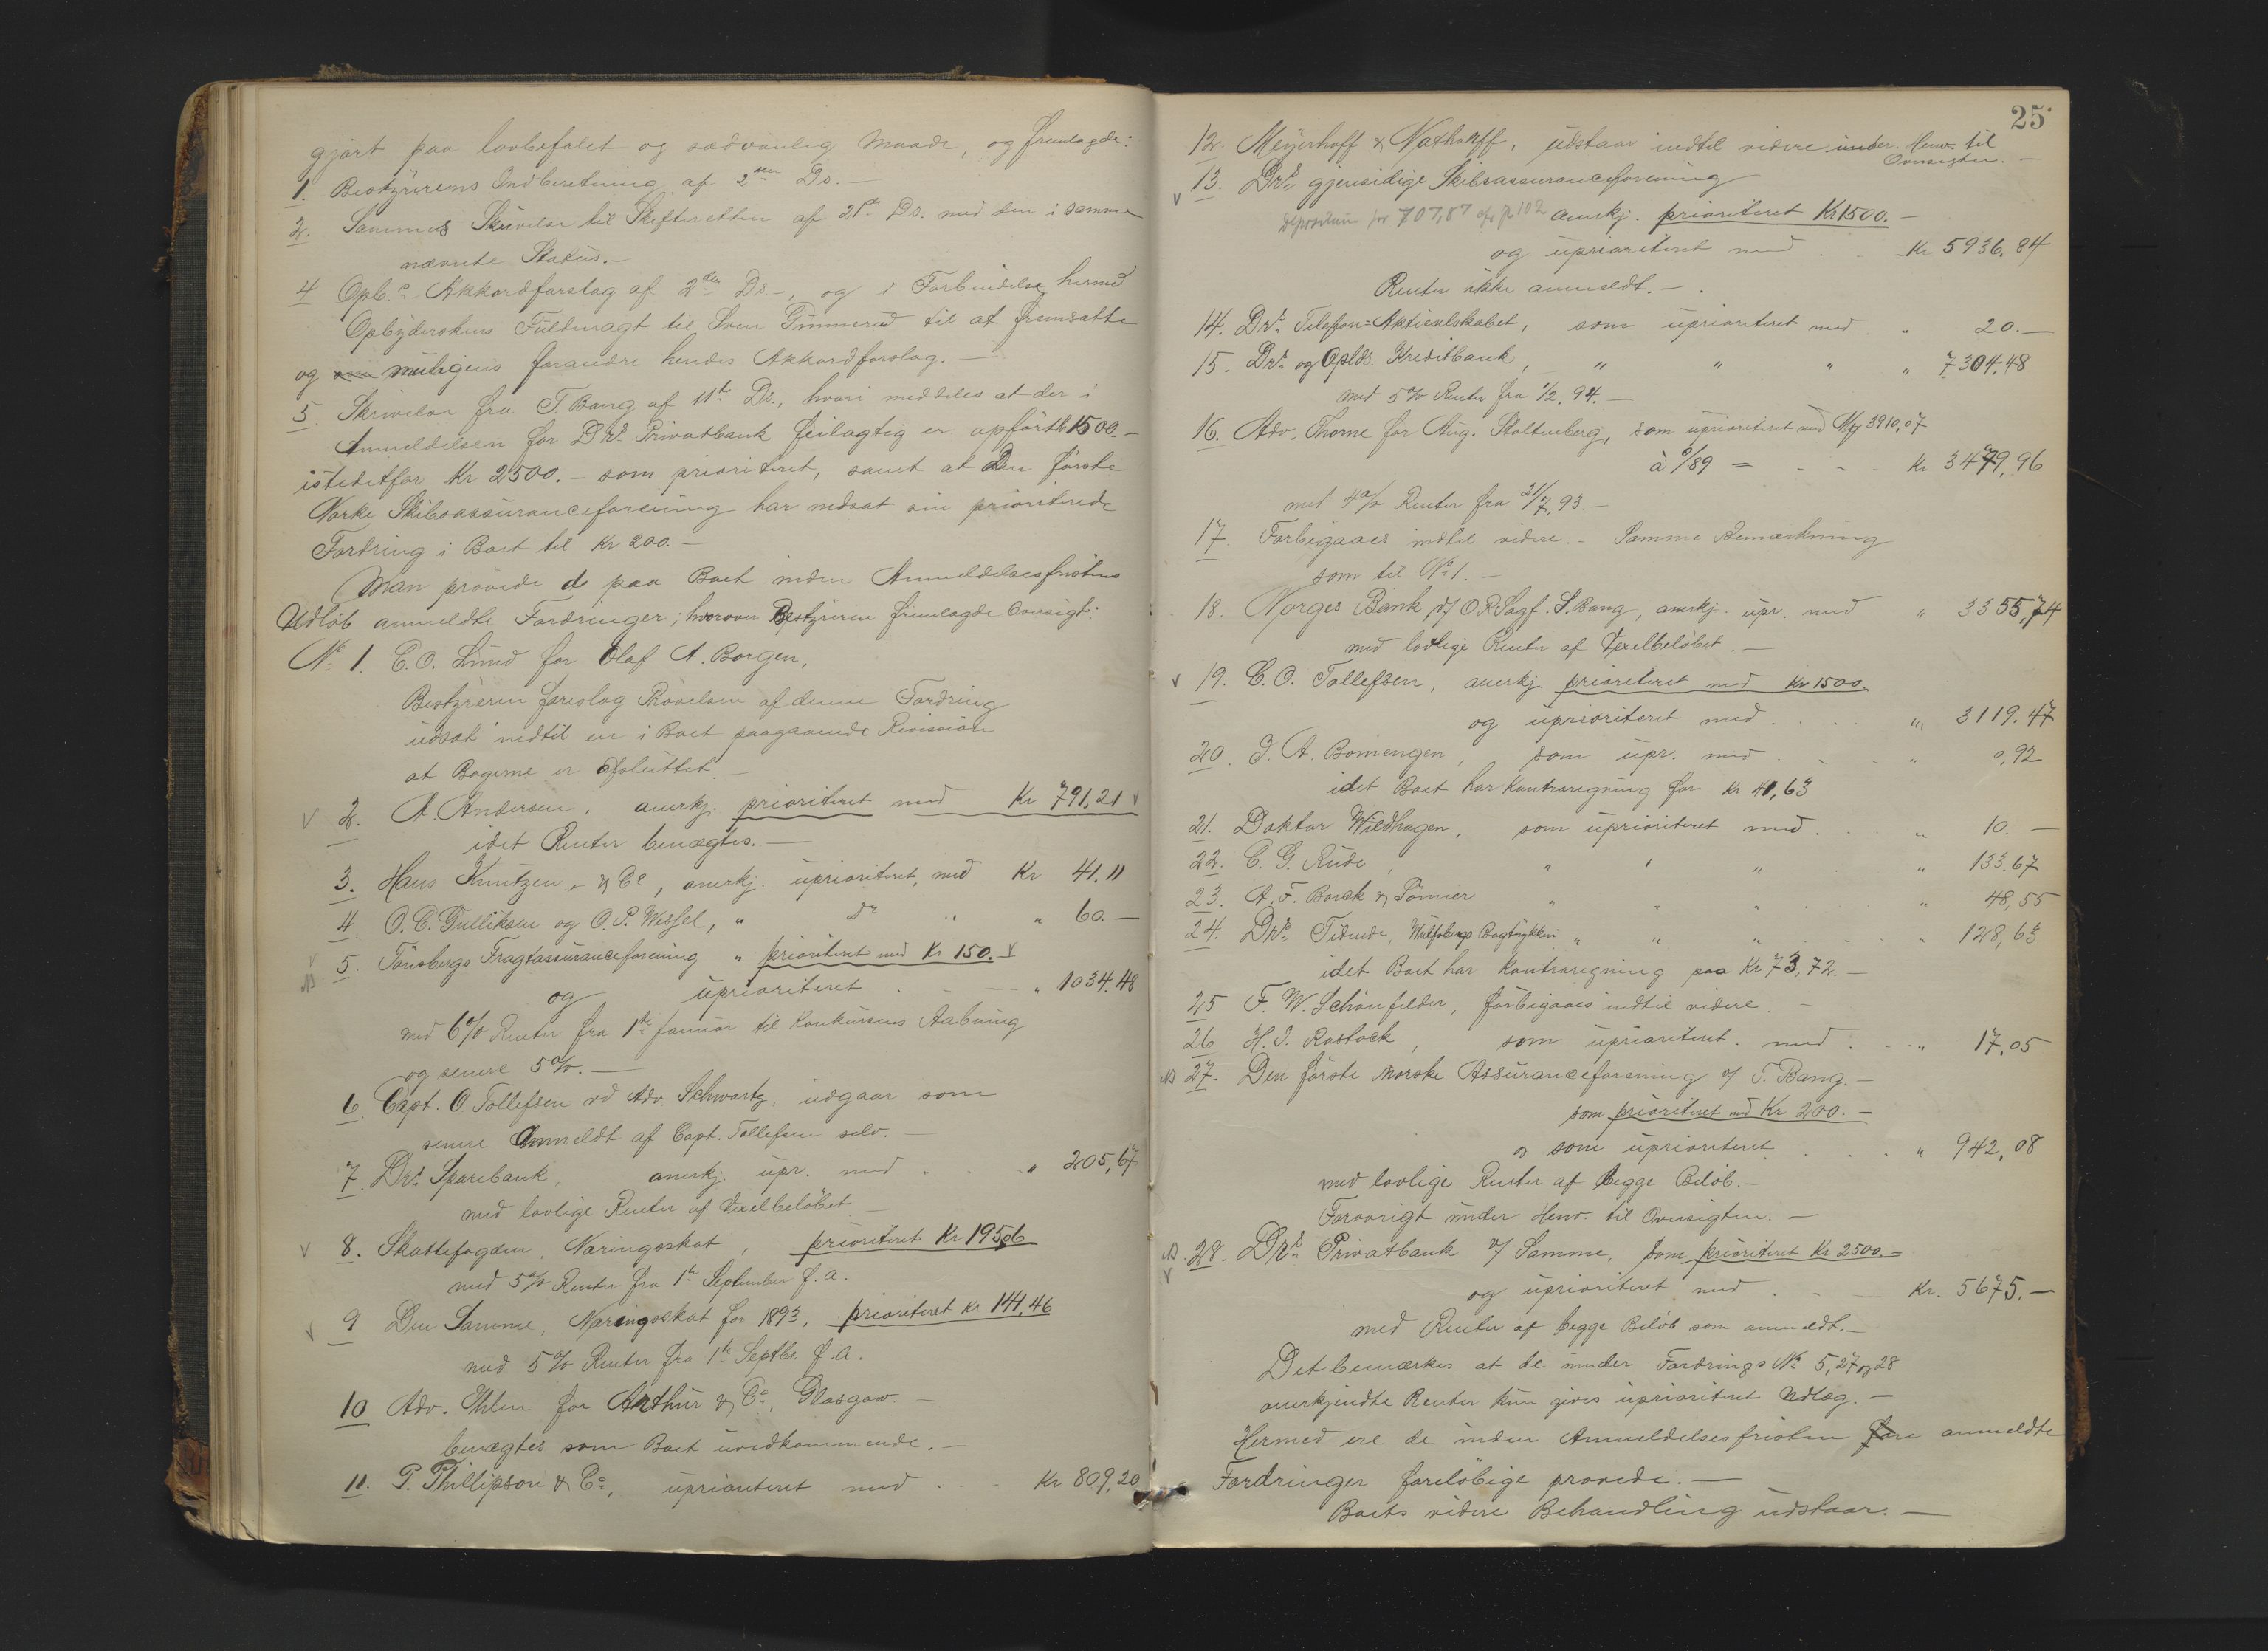 gjort paa lovbefalet og sædvanlig Maade, og fremlagde:
1. Bestyrerens Indberetning af 2den Ds. –
2. Sammes Skrivelse til Skifteretten af 21de Ds. med den i samme
nævnte Status. –
4 Opb.s Akkordforslag af 2den Ds. –, og i Forbindelse hermed
Opbyderskens Fuldmagt til Sven Gimmerud til at fremsætte
og muligens forandre hendes Akkordforslag. –
5 Skrivelse fra T. Bang af 11te Ds., hvori meddeles at der i
Anmeldelsen for Drs. Privatbank feilagtig er opfört 1500. –
istedetfor Kr 2500. – som prioriteret, samt at Den første
Norke Skibsassuranceforening har nedsat sin prioriterede
Fordring i Boet til Kr 200. –
Man prövede de paa Boet inden Anmeldelsesfristens
Udløb anmeldte Fordringer; hvorover Bestyreren fremlagde Oversigt:
No. 1. C. O. Lund for Olaf A. Borgen,
Bestyreren foreslog Prövelsen af denne Fordring
udsat indtil en i Boet paagaaende Revision
at Bøgerne er afsluttet. –
V 2. A. Andersen, anerkj. prioriteret med Kr 791,21 V
idet Renter benægtes. –
3. Hans Knutzen & Co, anerkj. uprioriteret, med Kr 41.11
4 O. C. Gulliksen og O. P. Wessel, " Do " " 60. –
V 5. Tönsbergs Fragtassuranceforening " prioriteret med Kr 150. – V
NB og uprioriteret . – – " 1034.48
med 6% Renter fra 1ste Januar til Konkursens Aabning
og senere 5%. –
6. Capt. O. Tollefsen vd Adv. Schwartz, udgaar som
senere Anmeldt af Capt. Tollefsen selv. –
7. Drs. Sparebank, anerkj. upr. med . . " 205,67
med lovlige Renter af Vexelbeløbet –
V 8. Skattefogden, Næringsskat, prioriteret Kr 195,06
med 5% Renter fra 1ste September f. a.
V 9 Den Samme, Næringsskat for 1893, prioriteret Kr 141,46
med 5% Renter fra 1ste Septbr. f. a.
10 Adv. Ihlen for Arthur & Co, Glasgow –
benægtes som Boet uvedkommende. –
11. P. Phillipson & Co, uprioriteret med . . . Kr 809,20
25
12. Meyerhoff & Nathorff, udstaar indtil videre under Henv. til
Oversigten. –
V 13. Drs. gjensidige Skibsassuranceforening
Depositum for 707,87 anerkj. prioriteret Kr 1500. –
og uprioriteret med . . – Kr 5936,84
Renter ikke anmeldt. – .
14. Drs. Telefon=Aktieselskabet, som uprioriteret med " 20. –
15. Drs. og Oplds. Kreditbank, " " " " 7304.48
med 5% Renter fra 1/2. 94. –
16. Adv. Thorne for Aug. Stoltenberg, som uprioriteret med Mf 3910,07
à c/89 = - - - Kr 3479,96
med 4% Renter fra 21/7, 93. –
17. Forbigaaes indtil videre. – Samme Bemærkning
som til No 1. –
18. Norges Bank, v/ O.R.Sagf. S. Bang, anerkj. upr. med " 3355,74
med lovlige Renter af Vexelbeløbet. –
V 19. C. O. Tollefsen, anerkj. prioriteret med Kr 1500
og uprioriteret med . . . . " 3119.47
20. J. A. Bomengen, som upr. med . . . " 0,92
idet Boet har Kontraregning for Kr 41,63
21. Doktor Wildhagen, som uprioriteret med . . . " 10. –
22. C. G. Rude, " " " . . " 133.67
23. A. F. Borck & Sönner " " " . . " 48,55
24. Drs. Tidende, Wulfsbergs Bogtrykkeri " " " . . " 128,63
idet Boet har Kontraregning paa Kr 73,72. –
25 F. W. Schönfelder, forbigaaes indtil videre. –
26 H. J. Rostock, som uprioriteret med . . . " 17.05
NB 27. Den første norske Assuranceforening v/ T. Bang. –
som prioriteret med Kr 200. –
og som uprioriteret . . . . " 942,08
med lovlige Renter af begge Beløb. –
Forøvrigt under Henv. til Oversigten. –
NB. V 28. Drs. Privatbank v/ Samme, som prioriteret Kr 2500. –
og uprioriteret med . – – Kr. 5675. –
med Renter af begge Beløb som anmeldt. –
Det bemærkes at de under Fordrings No 5, 27 og 28
anerkjendte Renter kun gives uprioriteret Udlæg. –
Hermed ere de inden Anmeldelsesfristen anmeldte
Fordringer foreløbige prøvede. –
Boets videre Behandling udstaar. –